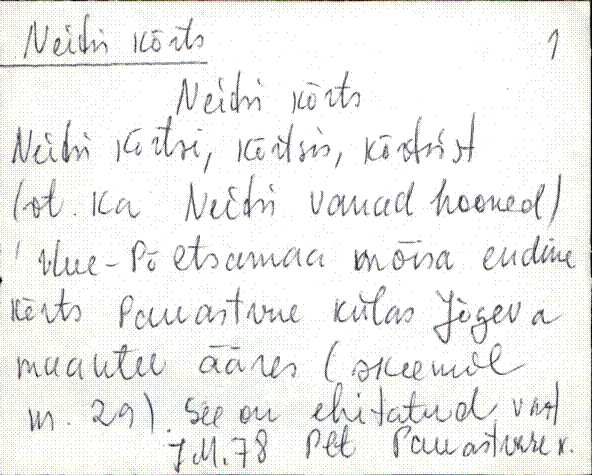 Neidri kõrts 1
Neidri kõrts
Neidri kõrtsi, kõrtsis, kõrtsist
(vt. ka Neidri vanad hooned)
Uue-Põltsamaa mõisa endine
kõrts Pauastvere külas Jõgeva
maantee ääres (skeemil
nr. 29). See on ehitatud vast
J.M. 78 Plt Pauastvere k.